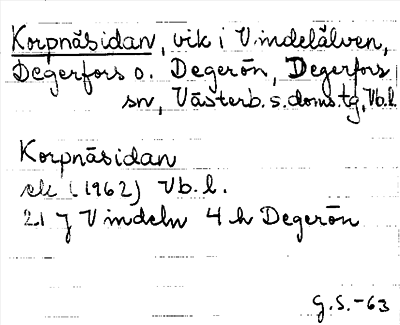 Korpnäsidan, vik i Vindelälven,
Degerfors o. Degerön, Degerfors
sn, Västerb. s. doms. tg, Vb. l.
Korpnäsidan
ek (1962) Vb. l.
21 J Vindeln 4 h Degerön
G. S. -63